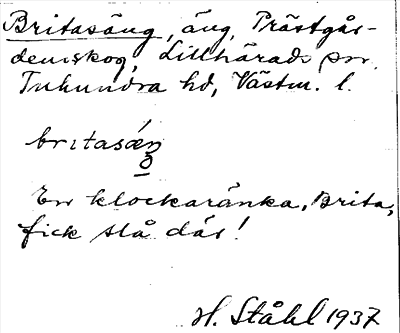 Britasäng, äng, Prästgår-
denskog, Lillhärads sn.
Tuhundra hd, Västm. l.
britasæŋ
En klockaränka, Brita,
fick slå där!
H. Ståhl 1937